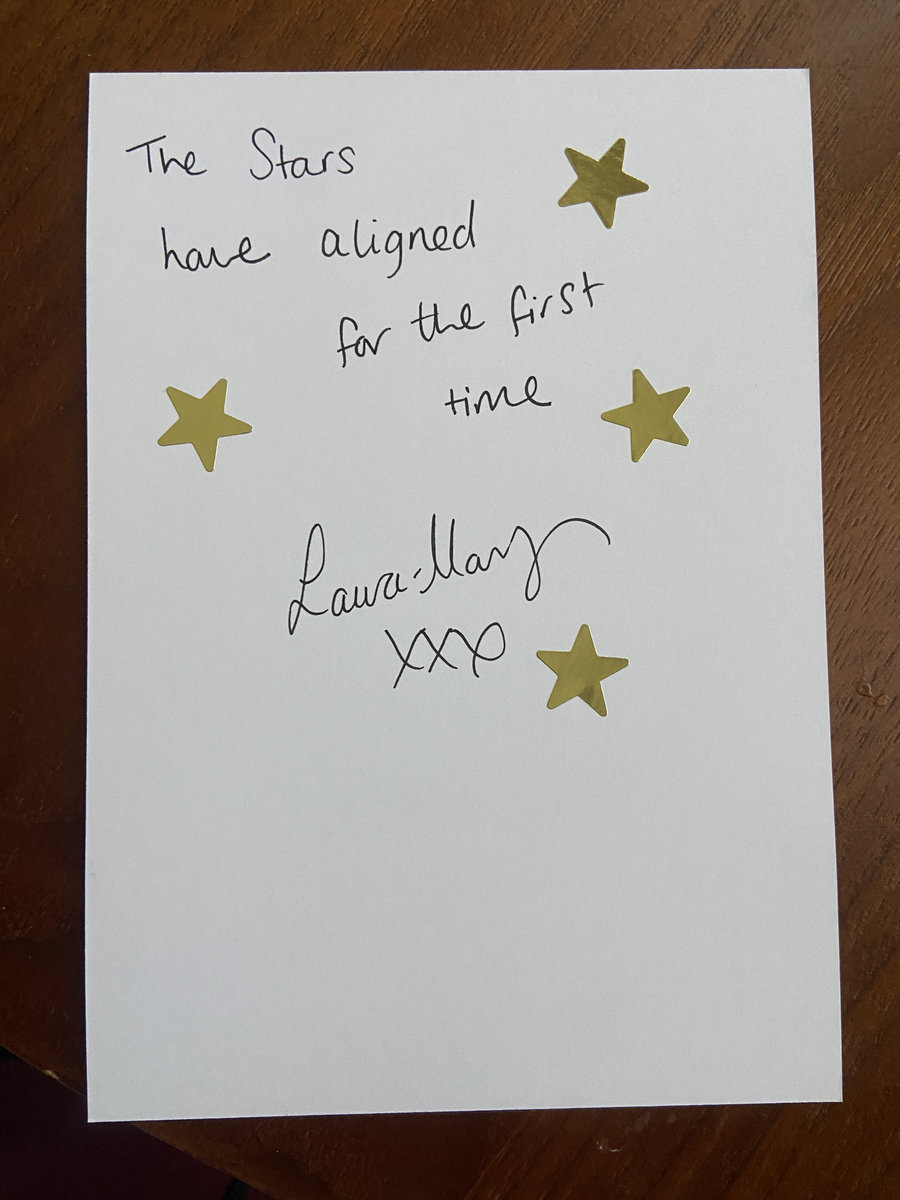 The Stars
have aligned
for the first
time
Laura-Mary
xxx